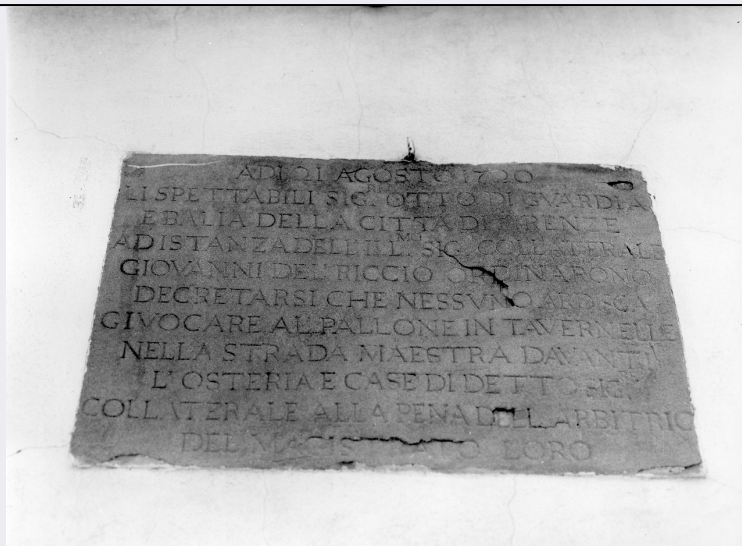 ADI 21 AGOSTO 1720
LI SPETTABILI SIG.RI OTTO DI GVARDIA
E BALIA DELLA CITTA DI FIRENZE
AD ISTANZA DELL'ILL.MO SIG. COLLATERALE
GIOVANNI DEL RICCIO ORDINARONO
DECRETARSI CHE NESSVNO ARDISCA
GIVOCARE AL PALLONE IN TAVERNELLE
NELLA STRADA MAESTRA DAVANTI
L'OSTERIA E CASE DI DETTO SIG.RE
COLLATERALE ALLA PENA DELL ARBITRIO
DEL MAGISTRATO LORO